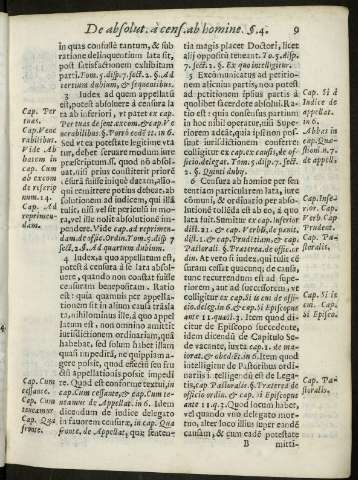 De absolut. à cens. ab homine. §.4. 9
in quas consultè tantum, & sub
ratione delinquentium lata sit,
post satisfactionem exhibitam
parti. Tom. 5. disp. 7. sect. 2. §. Ad
tertium dubium, & sequentibus.
3 Iudex ad quem appellatū
est, potest absolvere à censura la
ta ab inferiori, vt patet ex cap.
Per tuas de sent. excom. & cap. Ve
nerabilibus §. Porrò de 11. in 6.
Sed vt ea potestate legitimè vta
tur, debet formam modumque iure
præscriptum. quod nō absol-
uat, nisi priùs constiterit priorē
cēsurā fuisse iniquè datam, alio-
qui remittere potiùs debeat ab
solutionem ad iudicem, qui illā
tulit, nisi vel sit periculū in mo-
ra, vel ille nolit absolutionē im-
pendere. Vide cap. ad reprimen-
dam de offic. Ordin. Tom. 5. disp. 7
sect. 2. §. Ad quartum dubium.
4 Iudex, à quo appellatum est,
potest à censura à se lata absol-
uere, quando non constat fuisse
censuram benepositam. Ratio
est: quia quamuis per appella-
tionem sit in alium causa trāsla
ta, nihilominus ille, à quo appel
latum est, non omninò amittit
iurisdictionem ordinariam, quā
habebat, sed solum habet illam
quasi impeditā, ne quippiam a-
gere possit, quod effectui seu fru
ctū appellationis possit impedi
re. Quod est conforme textui, in
cap. Cum cessante, & cap. Cum te-
neamur de Appellat. in 6. Idem
dicendum de iudice delegato
in fauorem censuræ, in cap. Qua
fronte. de Appellat, quæ senten-
Cap. Per
tuas.
Cap. Vene
rabilibus.
Vide Ab
batem in
cap. Cum
ab excom
de rescrip
num. 14.
Cap. Ad
reprimen-
dam.
Cap. Cum
cessante.
Cap. Cum
teneamur
Cap. Qua
fronte.
tia magis placet Doctori, licèt
alij oppositū teneant. To. 5. disp.
7. sect. 2. §. Ex quo intelligitur.
5 Excommunicatus ad petitio-
nem alicuius partis, non potest
ad petitionem ipsius partis à
quolibet sacerdote absolui. Ra-
tio est: quia consensus partium
in hoc nihil operatur, nisi Supe-
riorem adeāt, quia ipsi non pos-
sunt iurisdictionem conferre.
colligitur ex cap. ex causis, de of-
ficio. delegat. Tom. 5. disp. 7. sect.
2. §. Quinti dubij.
6 Censura ab homine per sen
tentiam particularem lata, iure
cōmuni, & ordinario per abso-
lutionē tollēda est ab eo, à quo
lata fuit. Sumitur ex cap. Inferior
dist. 21. & cap. Verbū. de pœnit.
dist. 1. & cap. Prudentiam, & cap.
Pastoralis. §. Præterea. de officio or
din. At vero si iudex, qui tulit cē
suram cesset quacunque, de causa,
tunc recurrendum est ad supe-
riorem, aut ad successorem, vt
colligitur ex cap. Si is cui. de offi-
cio. deleg. in 6. & cap. Si Episcopus
ante 11. quæst. 3. Item quod di-
citur de Episcopo succedente,
idem dicendū de Capitulo Se-
de vacante, iuxta cap. 1. de ma-
iorat. & obediēt. in 6. Item quod
intelligitur de Pastoribus ordi-
narijs intelligendum est de Lega-
tis, cap. Pastoralis. §. Præterea de
officio ordin. & cap. si Episcopus
ante 11. q. 3. Quod locum habet,
vel quando vno delegato mor-
tuo, alter loco illius super eandē
causam, & cum eadē potestate
Cap. Si à
Iudice de
appellat.
in 6.
Abbas in
cap. Quæ-
stion. n. 7.
de appell.
Cap. Infe-
rior. Cap.
Verb. Cap
Prudent.
Cap. Pa-
storalis.
Cap. Si is
cui. Cap.
Si Episco.
Cap. Pa-
storalis.
B mitti-